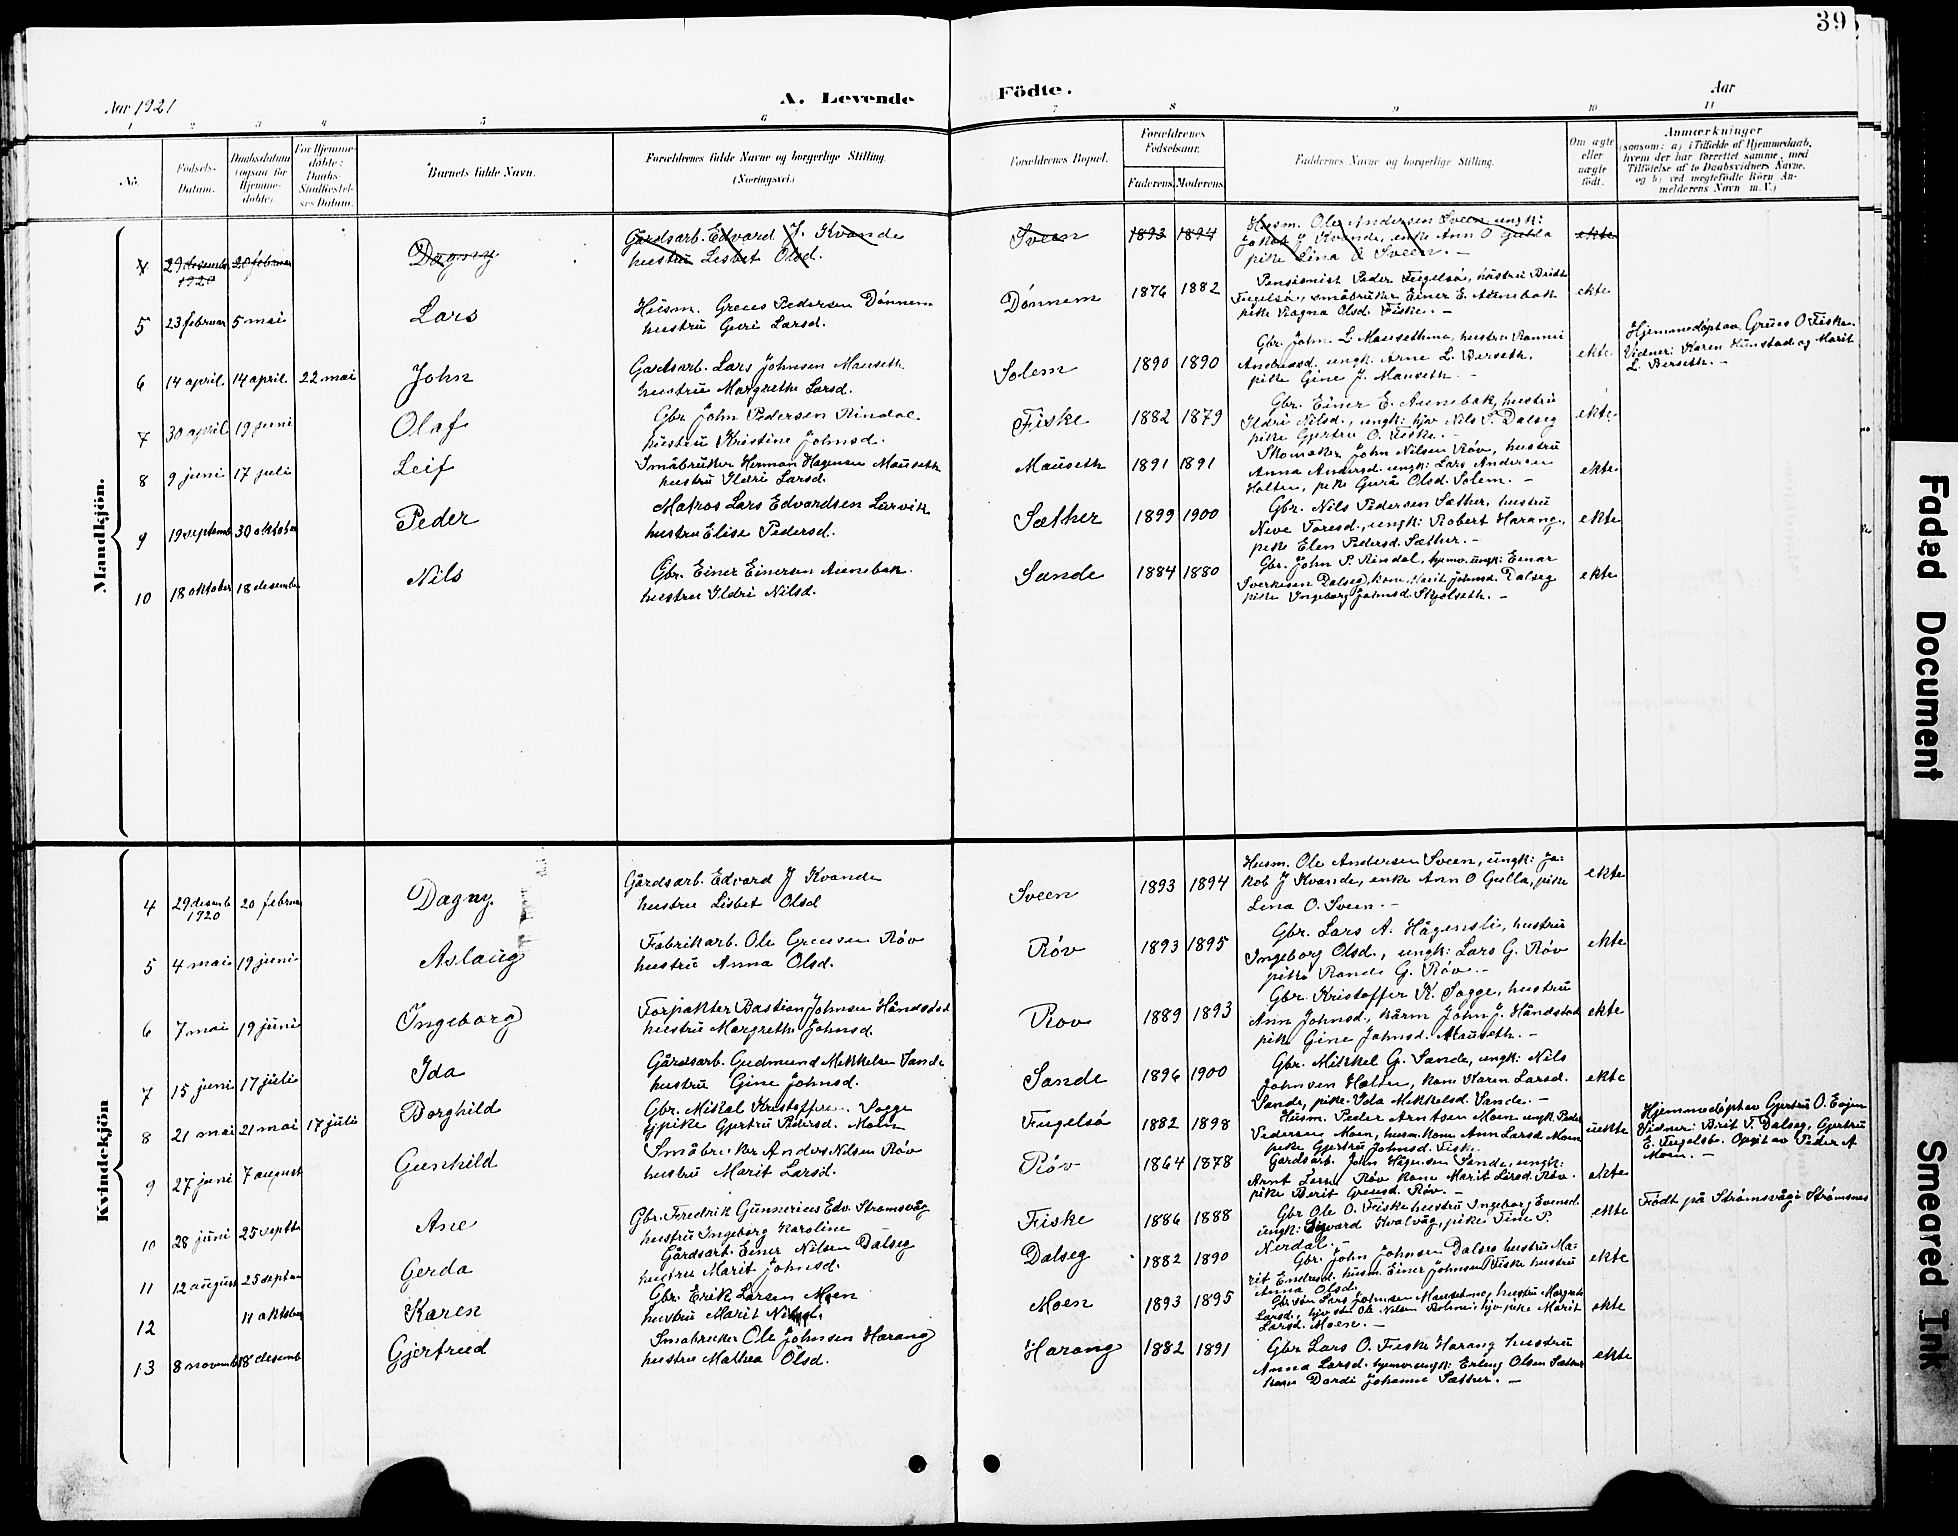 39
Aar 1921
A. Levende
Födte.
Aar
1 2 3 4 5 6 7 8 9 10 11
No.
Fødsels-
Datum.
Daabsdatum
(ogsaa for
Hjemme-
døbte).
For Hjemme-
døbte:
Daabs-
Stadfæstel-
ses Datum.
Barnets fulde Navn.
Forældrenes fulde Navne og borgerlige Stilling.
(Næringsvei.)
Forældrenes Bopæl.
Forældrenes
Fødselsaar.
Faderens. Moderens.
Faddernes Navne og borgerlige Stilling.
Om ægte
eller
uægte
født.
Anmærkninger
(saasom: a) i Tilfælde af Hjemmedaab,
hvem der har forrettet samme, med
Tilføielse af to Daabsvidners Navne.
og b) ved uægtefødte Børn An-
melderens Navn m. V.)
Mandkjön.
4 29 desemb. 1920 20 februar Dagny
Gårdsarb. Edvard J. Kvande
hustru Lisbet Olsd.
Sveen 1893 1894
Husm. Ole Andersen Sveen, ungk:
Jakob J Kvande, enke Ann O Gulla
pike Lina O Sveen. —
ekte
5 23 februar 5 mai Lars
Husm. Greus Pedersen Dønnem
hustru Guri Larsd.
Dønnem 1876 1882
Pensionist Peder Fugelsø, hustru Brit
Fugelsø, småbruker Einer E. Aunebak
pike Ragna Olsd. Fiske. —
ekte
6 14 april 14 april 22 mai John
Gardsarb. Lars Johnsen Mauseth
hustru Margrethe Larsd.
Solem 1890 1890
Gbr. John L. Mausethmo, hustru Rannei
Andreasd. ungk. Arne L. Berseth,
pike Gine J. Mauseth. —
ekte.
Hjemmedøpt av Greus O Fiske.
Vidner: Karen Hunstad og Marit
L. Berseth. —
7 30 april 19 juni Olaf
Gbr John Pedersen Rindal
hustru Kristine Johnsd.
Fiske 1882 1879
Gbr. Einer E. Aunebak, hustru
Ildri Nilsd., ungk: hjv Nils T. Dalseg
pike Gjertru O. Fiske. —
ekte.
8 9 juni 17 juli Leif
Småbruker Herman Hagensen Mauseth
hustru Ildri Larsd.
Mauseth 1891 1891
Skomaker John Nilsen Røv, hustru
Anna Andersd. ungk: Lars Andersen
Holten, pike Guru Olsd. Solem. —
ekte.
9 19 septemb 30 oktober Peder
Matros Lars Edvardsen Lervik
hustru Elise Pedersd.
Sæther 1899 1900
Gbr. Nils Pedersen Sæther, hustru
Neve Toresd., ungk: Robert Harang,
pike Elen Pedersd. Sæther. —
ekte
10 18 oktober 18 desember Nils
Gbr. Einer Einersen Aunebak
hustru Ildri Nilsd.
Sande 1884 1880
Gbr. John P. Rindal, hjemv. ungk: Einar
Sverkesen Dalseg, kone Marit Johnsd. Dalseg
pike Ingeborg Johnsd. Skjølseth. —
ekte
Kvindekjön
4 29 desemb 1920 20 februar Dagny
Gårdsarb. Edvard J Kvande
hustru Lisbet Olsd
Sveen 1893 1894
Husm. Ole Andersen Sveen, ungk: Ja-
kob J Kvande, enke Ann O Gulla, pike
Lina O. Sveen. —
ekte
5 4 mai 19 juni Aslaug
Fabrikarb. Ole Greusen Røv
hustru Anna Olsd.
Røv 1893 1895
Gbr. Lars A. Hågensli, hustru
Ingeborg Olsd., ungk: Lars G. Røv
pike Randi G. Røv. —
ekte
6 7 mai 19 juni Ingeborg
Forpakter Bastian Johnsen Håndstad
hustru Margrethe Johnsd.
Røv 1889 1893
Gbr. Kristoffer K. Sogge, hustru
Ann Johnsd., kårm John J. Håndstad
pike Gine Johnsd. Mauseth. —
ekte
7 15 juni 17 juli Ida
Gårdsarb. Gudmund Mikkelsen Sande
hustru Gine Johnsd.
Sande 1896 1900
Gbr. Mikkel G. Sande, ungk: Nils
Johnsen Halsen, kone Karen Larsd.
Sande, pike. Ida Mikkelsd. Sande. —
ekte
8 21 mai 21 mai 17 juli Borghild
Gbr. Mikal Kristoffersen Sogge
Gpike Gjertru Pedersd. Moen
Fugelsø 1882 1898
Husm. Peder Arntsen Moen ungk. Peder
Pedersen Moen, husm. kone Ann Larsd. Moen
pike Gjertru Johnsd. Fiske.
uekte
Hjemmedøpt av Gjertru O. Evjen
Vidner: Brit T. Dalseg, Gjertru
E. Fugelsø. Opgit av Peder A.
Moen. —
9 27 juni 7 august Gunhild
Småbruker Anders Nilsen Røv
hustru Marit Larsd.
Røv 1864 1878
Gardsarb. John Hågensen Sande, ungk:
Arnt Larsen Røv kone Marit Larsd. Røv.
pike Berit Greusd. Røv. —
ekte
10 28 juni 25 septbr Ane
Gbr. Fredrik Gunnerius Edv. Strømsvåg
hustru Ingeborg Karoline
Fiske 1886 1888
Gbr Ole O. Fiske hustru Ingeborg Evensd.
ungk: Sigvard Hvalvåg, pike Tine P.
Nerdal. —
ekte
Født på Strømsvåg i Strømsnes
11 12 august 25 septem Gerda
Gårdsarb. Einer Nilsen Dalseg
hustru Marit Johnsd.
Dalseg 1882 1890
Gbr. John Johnsen Dalseg hustru Ma-
rit Endresd. husm. Einer Johnsen Fiske hustru
Anna Olsd.
ekte
12 11 oktober Karen
Gbr. Erik Larsen Moen
hustru Marit Nilsd.
Moen 1893 1895
Gbr. søn Lars Johnsen Mausethmo, hustru Margrete
Larsd., hjv søn Ole Nilsen Solem, hjv pike Marit
Larsd. Moen. —
ekte
13 8 novemb 18 desemb Gjertrud
Småbruker Ole Johnsen Harang
hustru Mathea Olsd.
Harang 1882 1891
Gbr Lars O. Fiske Harang hustru
Anna Larsd. hjemv. ungk: Erling Olsen Sæther
kone Dordi Johanne Sæther. —
ekte
Faded Document
Smeared Ink